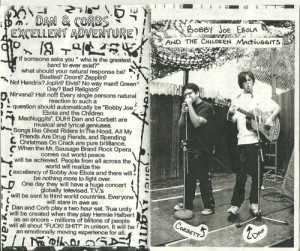 DAN & CORBS
EXCELLENT ADVENTURE
If someone asks you " who is the greatest
band to ever exist?"
what should your natural response be?
Beatles? Doors? Zepplin?
No! Hendrix? Joplin? Elvis? No way man!! Green
Day? Bad Religion?
Nirvana? Hell no!! Every single persons natural
reaction to such a
question should automatically be "Bobby Joe
Ebola and the Children
MacNuggits". DUH! Dan and Corbett are
musical and lyrical geniuses.
Songs like Ghost Riders In The Hood, All My
Friends Are Drug Fiends, and Spending
Christmas On Crack are pure brilliance.
When the Mr. Sausage Brand Rock Opera
comes out world peace
will be achieved. People from all across the
world will realize the
excellency of Bobby Joe Ebola and there will
be nothing more to fight over.
One day they will have a huge concert
globally televised, T.V.'s
will be sent to third world countries. Everyone
will stare in awe as
Dan and Corb play a two hour set. True unity
will be created when they play Hermie Halbert
as an encore - millions of billions of people
will all shout "FUCK! SHIT!" in unison. It will be
an emotionally moving experience for all.
BOBBY JOE EBOLA
AND THE CHILDREN MACNUGGITS
CORBETT
DAN